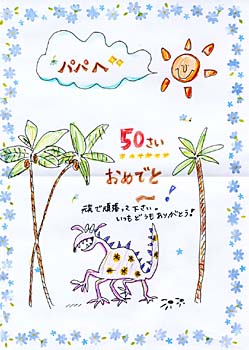 パパへ
50さい
おめでと
〜!
元気で頑張って下さい。
いつもどうもありがとう!